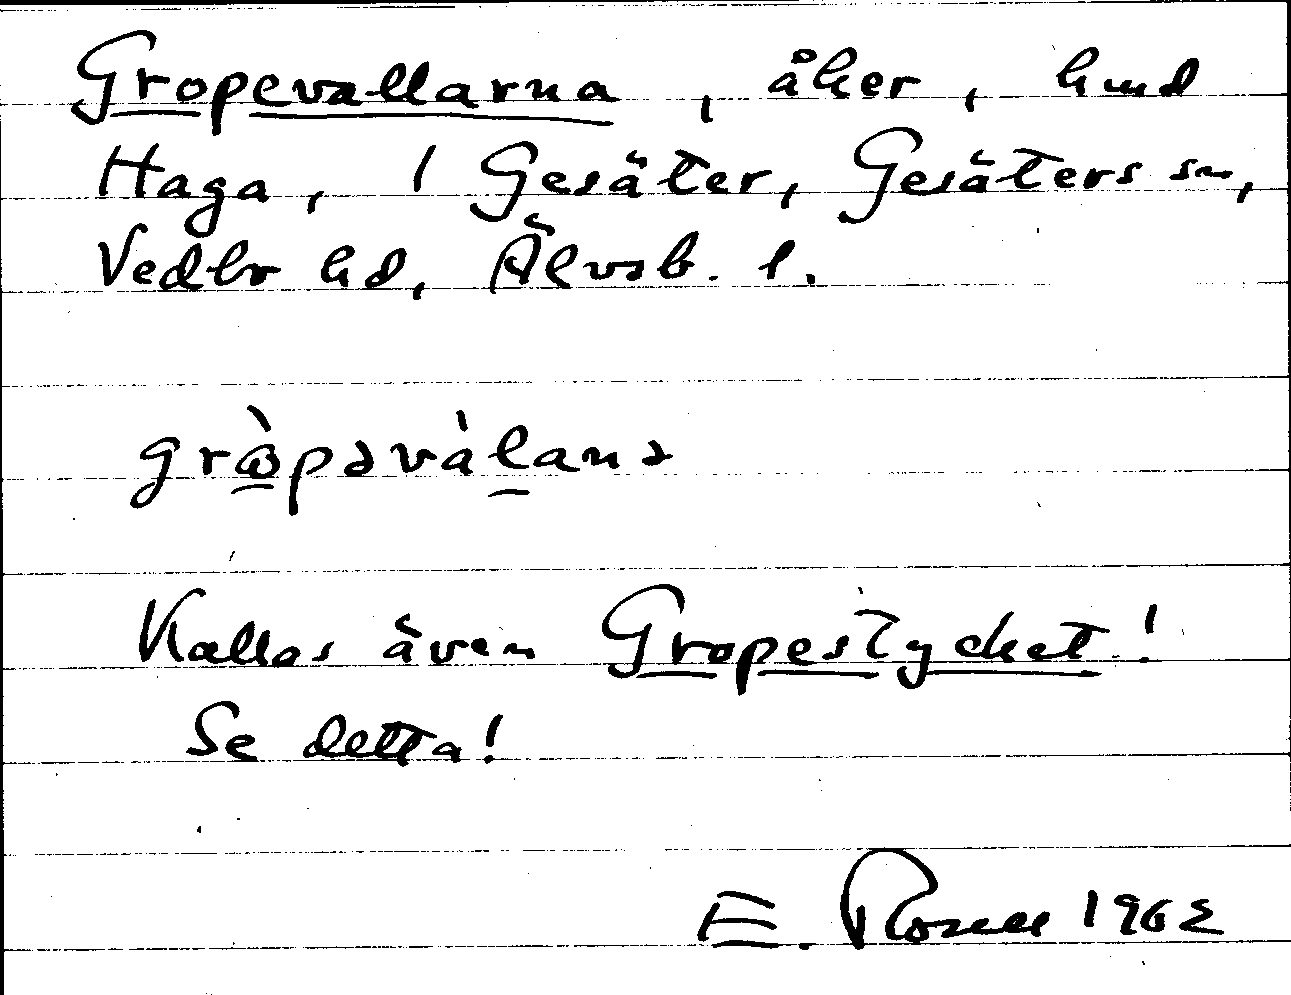 Gropevallarna, åker, hmd
Haga, 1 Gesäter, Gesäters sn,
Vedbr hd, Älvsb. l.
grɷ̀pəvàlanə
Kallas även Gropestycket!
Se detta!
E. Rosell 1962